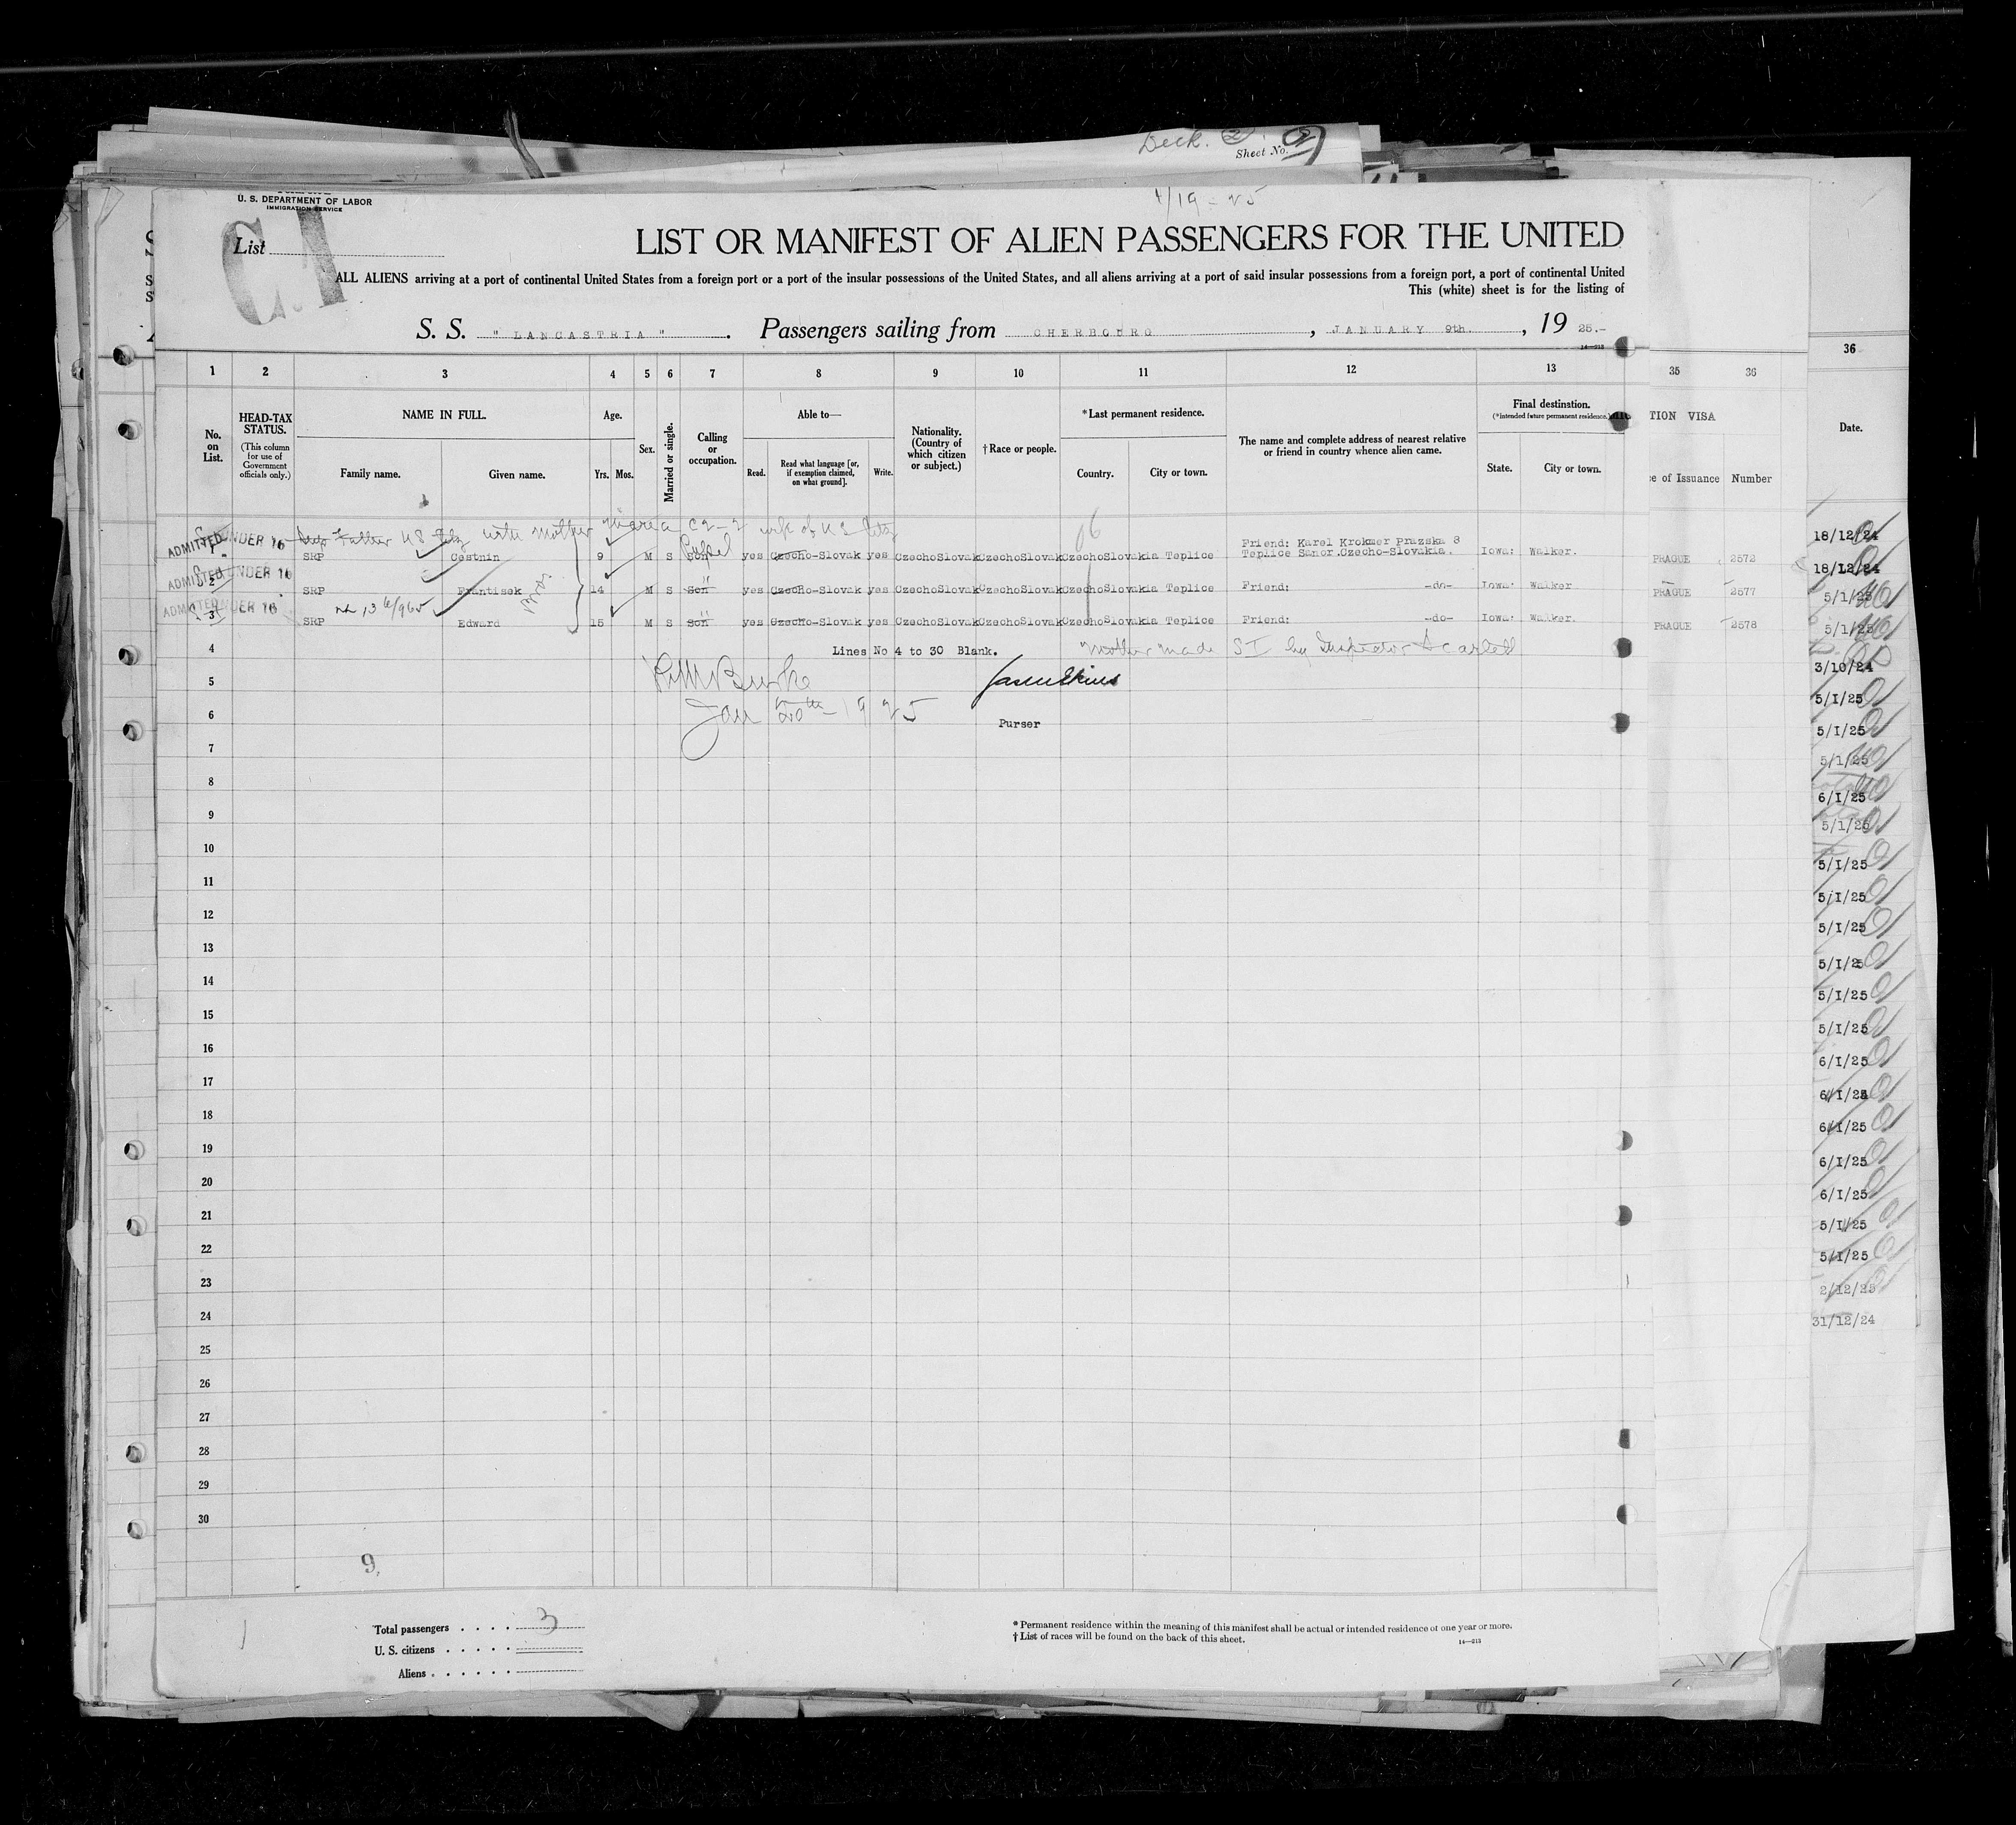 Deck. 2.
Sheet No. 2
U. S. DEPARTMENT OF LABOR
IMMIGRATION SERVICE
1/19-25
C.1
List
LIST OR MANIFEST OF ALIEN PASSENGERS FOR THE UNITED
ALL ALIENS arriving at a port of continental United States from a foreign port or a port of the insular possessions of the United States, and all aliens arriving at a port of said insular possessions from a foreign port, a port of continental United
This (white) sheet is for the listing of
S. S. "LANCASTRIA". Passengers sailing from CHERBOURG, JANUARY 9th., 19 25.-
14—213
1 2 3 4 5 6 7 8 9 10 11 12 13 35 36 36
No. on List.
HEAD-TAX STATUS.
(This column for use of Government officials only.)
NAME IN FULL.
Family name. Given name.
Age.
Yrs. Mos.
Sex.
Married or single.
Calling or occupation.
Able to—
Read. Read what language [or, if exemption claimed, on what ground]. Write.
Nationality. (Country of which citizen or subject.)
†Race or people.
*Last permanent residence.
Country. City or town.
The name and complete address of nearest relative or friend in country whence alien came.
Final destination.
(*Intended future permanent residence.)
State. City or town.
TION VISA
e of Issuance Number
Date.
Father US Citz with mother Maria C2-2 wife of US Citz
1 ADMITTED UNDER 16 SRP Cestnin 9 M S Son Pupil yes Czecho-Slovak yes CzechoSlovak CzechoSlovak CzechoSlovakia Teplice Friend: Karel Krokmer Prazska 8 Teplice Sanor.Czecho-Slovakia. Iowa: Walker. PRAGUE 2572
2 ADMITTED UNDER 16 SRP Frantisek 14 M S Son " yes Czecho-Slovak yes CzechoSlovak CzechoSlovak CzechoSlovakia Teplice Friend: -do- Iowa: Walker PRAGUE 2577
3 ADMITTED UNDER 16 SRP Edward 15 M S Son " yes Czecho-Slovak yes CzechoSlovak CzechoSlovak CzechoSlovakia Teplice Friend: -do- Iowa: Walker. PRAGUE 2578
4 Lines No 4 to 30 Blank. Mother made SI by Inspector Scarlett
5
6 Jan 20th-1925 Purser
7
8
9
10
11
12
13
14
15
16
17
18
19
20
21
22
23
24
25
26
27
28
29
30
18/12/24
18/12/24
5/1/25
5/1/25
3/10/24
5/1/25
5/1/25
5/1/25
6/1/25
5/1/25
5/1/25
5/1/25
5/1/25
5/1/25
5/1/25
5/1/25
6/1/25
6/1/25
6/1/25
6/1/25
6/1/25
5/1/25
5/1/25
2/12/25
31/12/24
9.
1
Total passengers 3
U. S. citizens
Aliens
*Permanent residence within the meaning of this manifest shall be actual or intended residence of one year or more.
†List of races will be found on the back of this sheet.
14—213